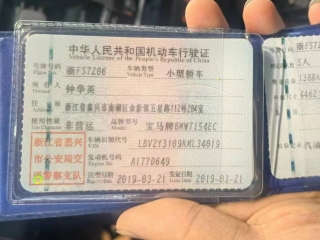 中华人民共和国机动车行驶证
Vehicle License of the People's Republic of China
号牌号码 浙F5TZ06 车辆类型 小型轿车
Plate No. Vehicle Type
所有人 钟华英
Owner
住址 浙江省嘉兴市南湖区余新镇五星路112号204室
Address
使用性质 非营运 品牌型号 宝马牌BMW7154EC
Use Character Model
浙江省嘉兴
市公安局交
通警察支队
车辆识别代号 LBVZY3109KML34019
VIN
发动机号码 A1770649
Engine No.
注册日期 2019-03-21 发证日期 2019-03-21
Register Date Issue Date
5人